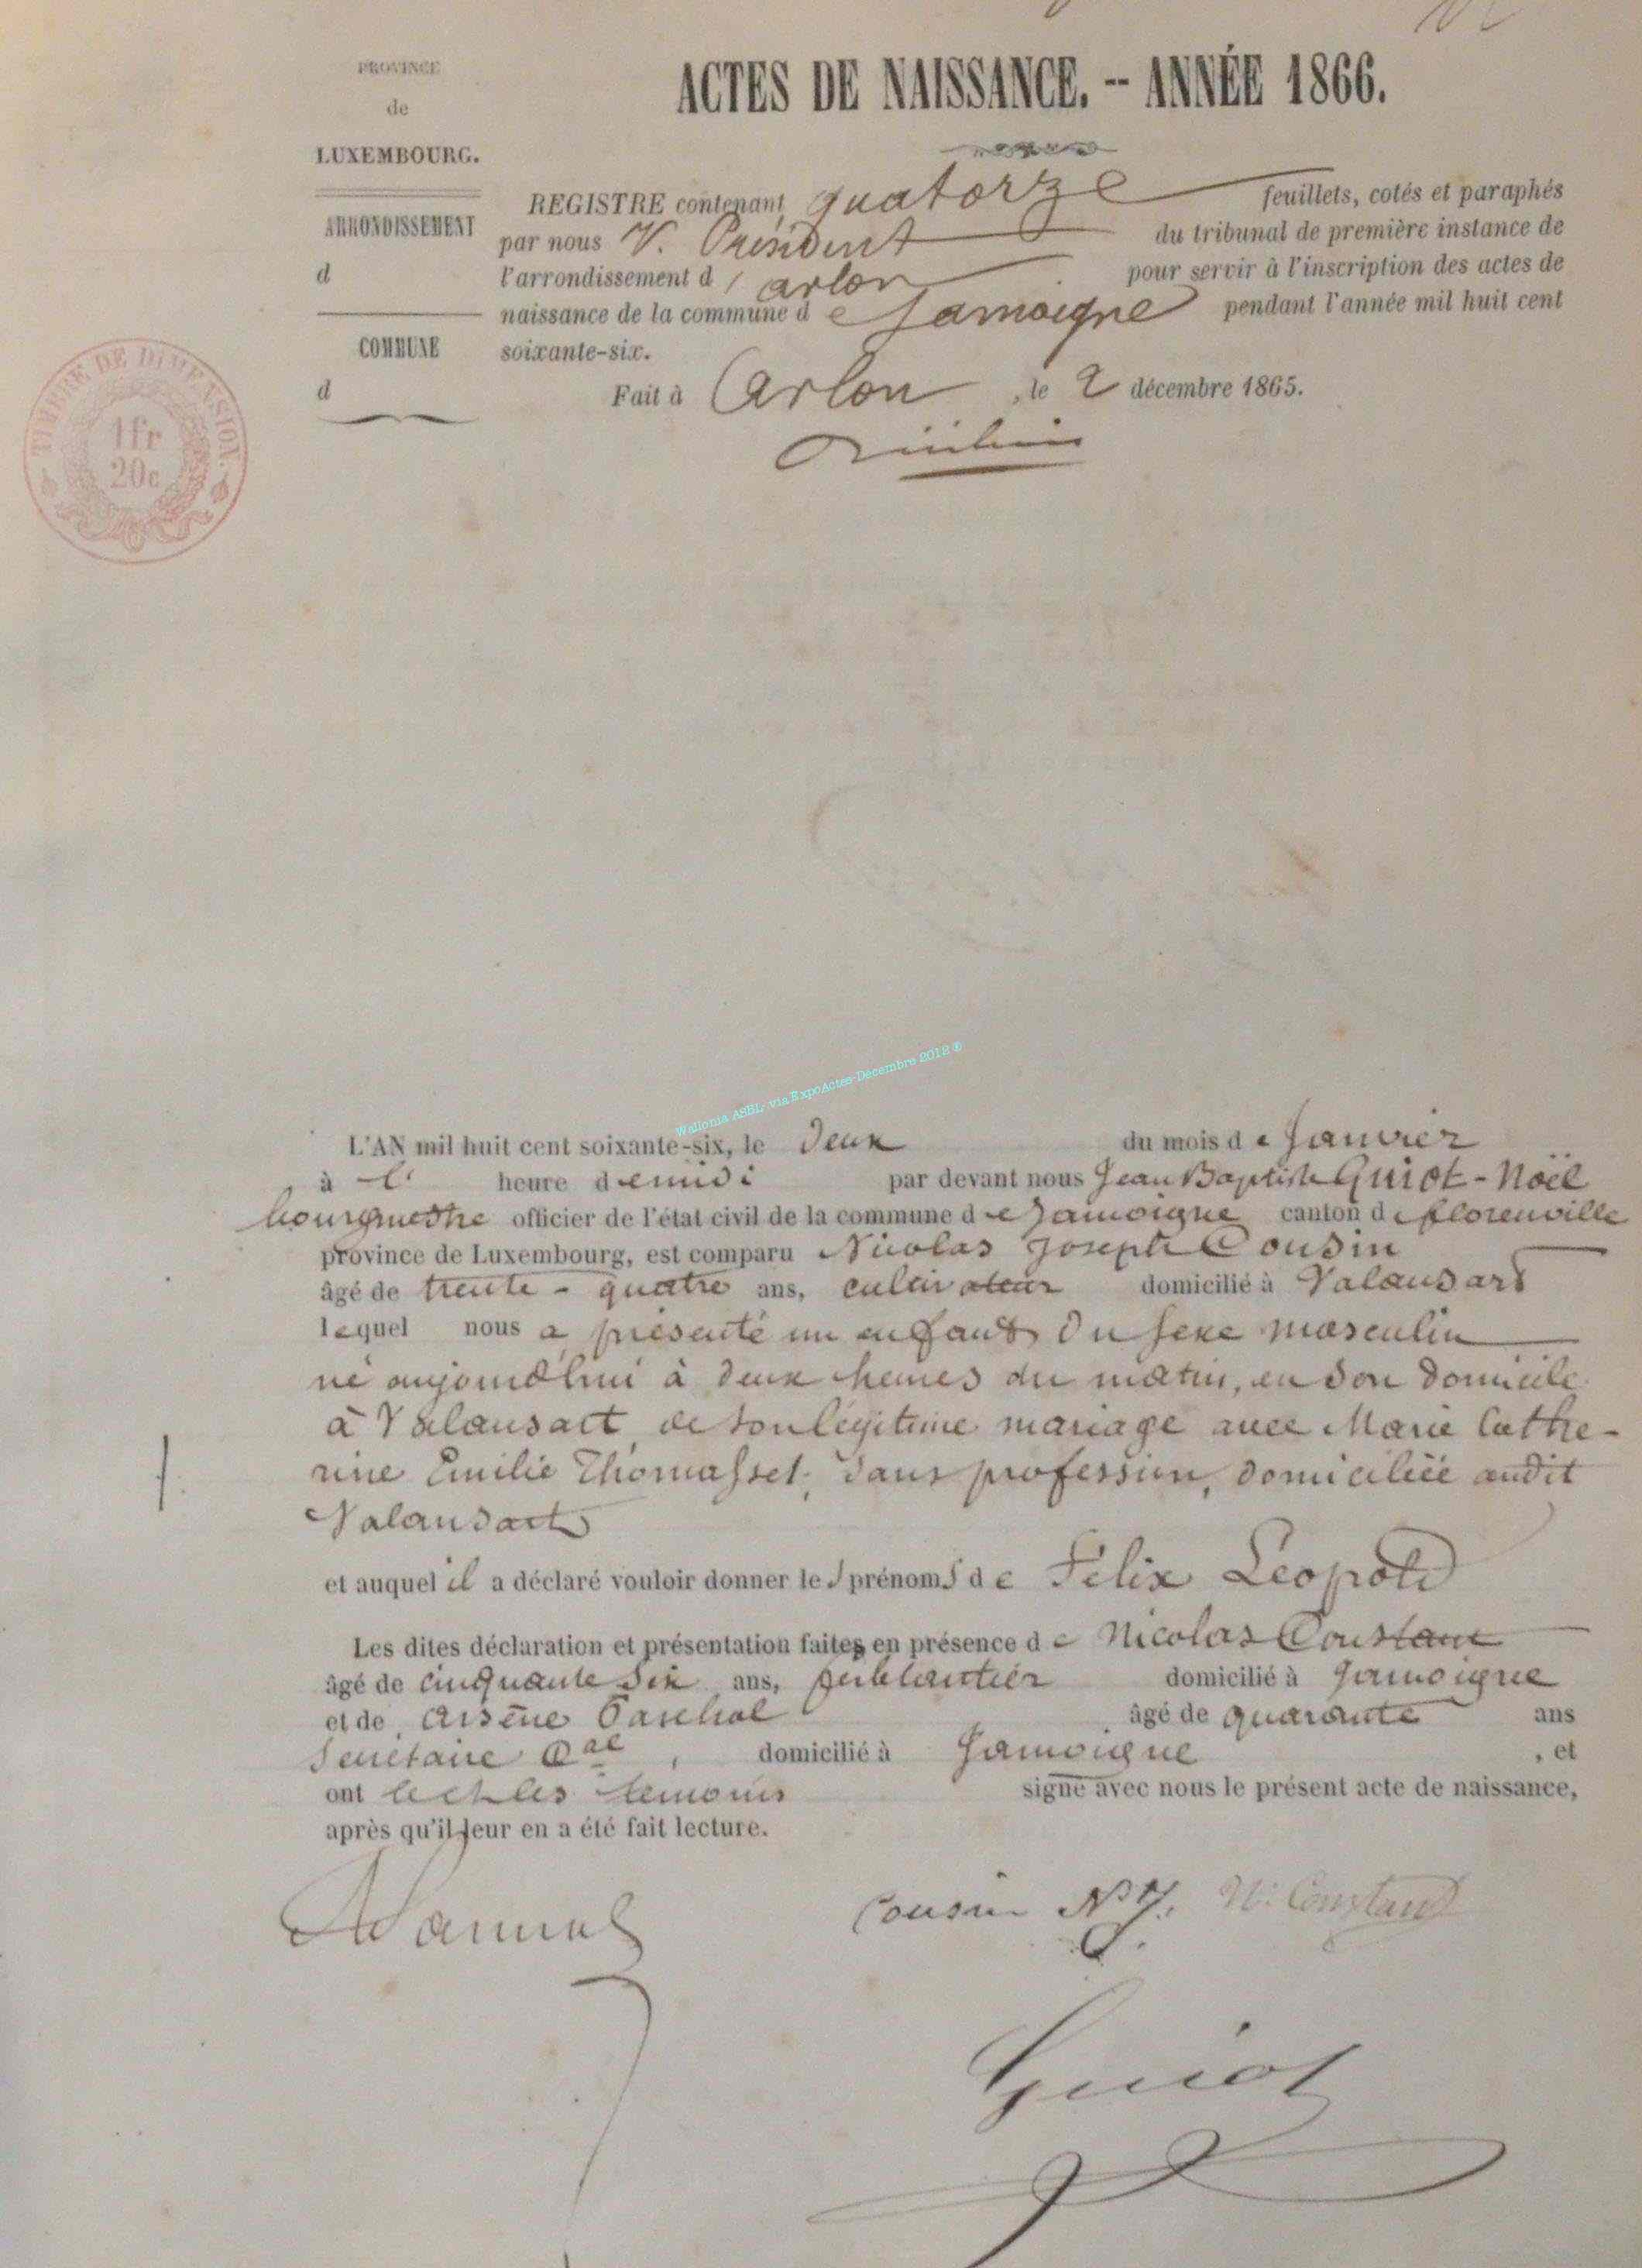 PROVINCE
de
LUXEMBOURG.
ARRONDISSEMENT
d
COMMUNE
d
TIMBRE DE DIMENSION.
1fr
20c
ACTES DE NAISSANCE. -- ANNÉE 1866.
REGISTRE contenant quatorze feuillets, cotés et paraphés
par nous V. Président du tribunal de première instance de
l'arrondissement d'arlon pour servir à l'inscription des actes de
naissance de la commune de Jamoigne pendant l'année mil huit cent
soixante-six.
Fait à Arlon, le 2 décembre 1865.
Wallonia ASBL via ExpoActes-Décembre 2012 ®
L'AN mil huit cent soixante-six, le deux du mois de Janvier
à l' heure de midi par devant nous Jean Baptiste Guiot-Noël
bourgmestre officier de l'état civil de la commune de Jamoigne canton de florenville
province de Luxembourg, est comparu Nicolas Joseph Cousin
âgé de trente-quatre ans, cultivateur domicilié à Valansart
lequel nous a présenté un enfant du sexe masculin
né aujourd'hui à deux heures du matin, en son domicile
à Valansart, de son légitime mariage avec Marie Cathe-
rine Emilie Thomasset, sans profession, domiciliée audit
Valansart
1.
et auquel il a déclaré vouloir donner les prénoms de Félix Léopold
Les dites déclaration et présentation faites en présence de Nicolas Constant
âgé de cinquante six ans, ferblantier domicilié à Jamoigne
et de Arsène âgé de quarante ans
Secrétaire Cal, domicilié à Jamoigne, et
ont les témoins signé avec nous le présent acte de naissance,
après qu'il leur en a été fait lecture.
Cousin N. J. N. Constant
Guiot